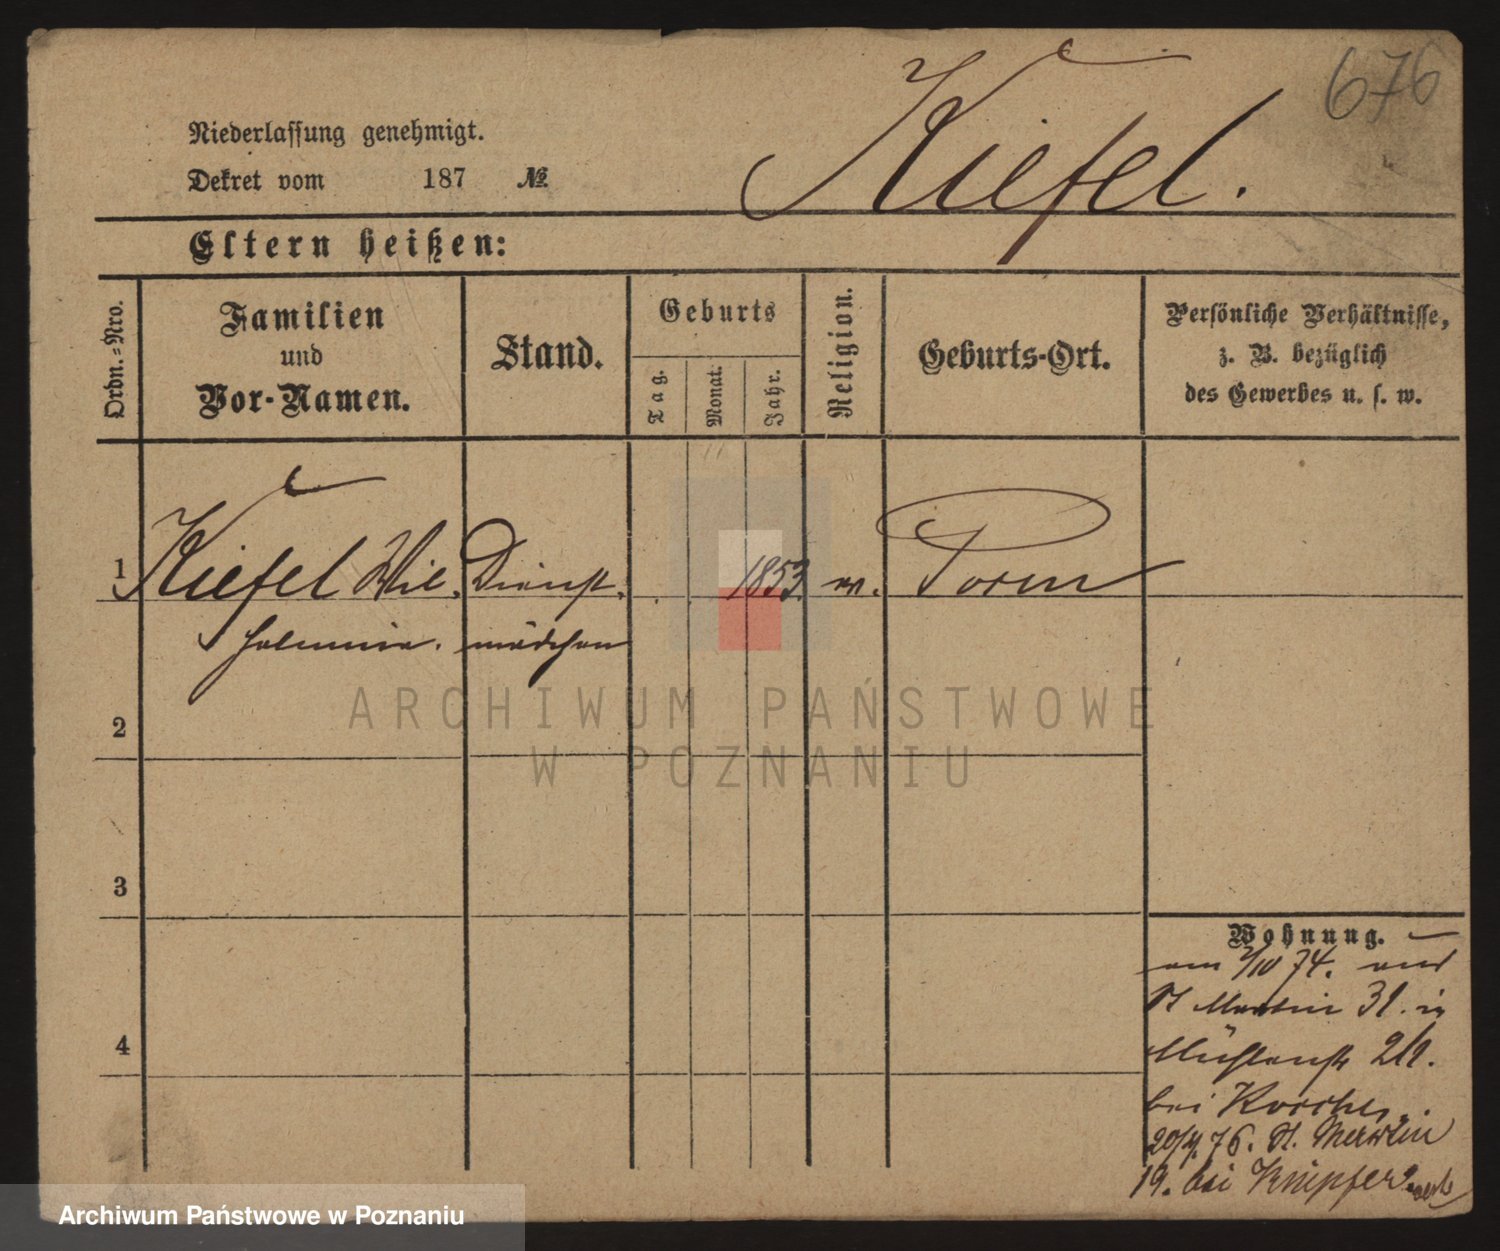 676
Kiefel.
Niederlassung genehmigt.
Dekret vom 187 №
Eltern heißen:
Ordn.-Nro.
Familien
und
Vor-Namen.
Stand.
Geburts
Tag.
Monat.
Jahr.
Religion.
Geburts-Ort.
Persönliche Verhältnisse,
z. B. bezüglich
des Gewerbes u. s. w.
1 Kiefel Wil. Dienst. 1853.
helmine. mädchen
2
3
4
Wohnung.
74.
St Martin 31. in
Mühlenstr
bei
76. St. Martin
19. bei
ARCHIWUM PAŃSTWOWE
W POZNANIU
Archiwum Państwowe w Poznaniu